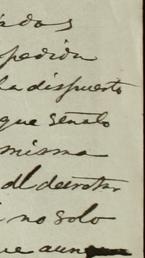 ados
pedida
la dispuesto
que señalo
misma
dl decretar
no solo
ue aun